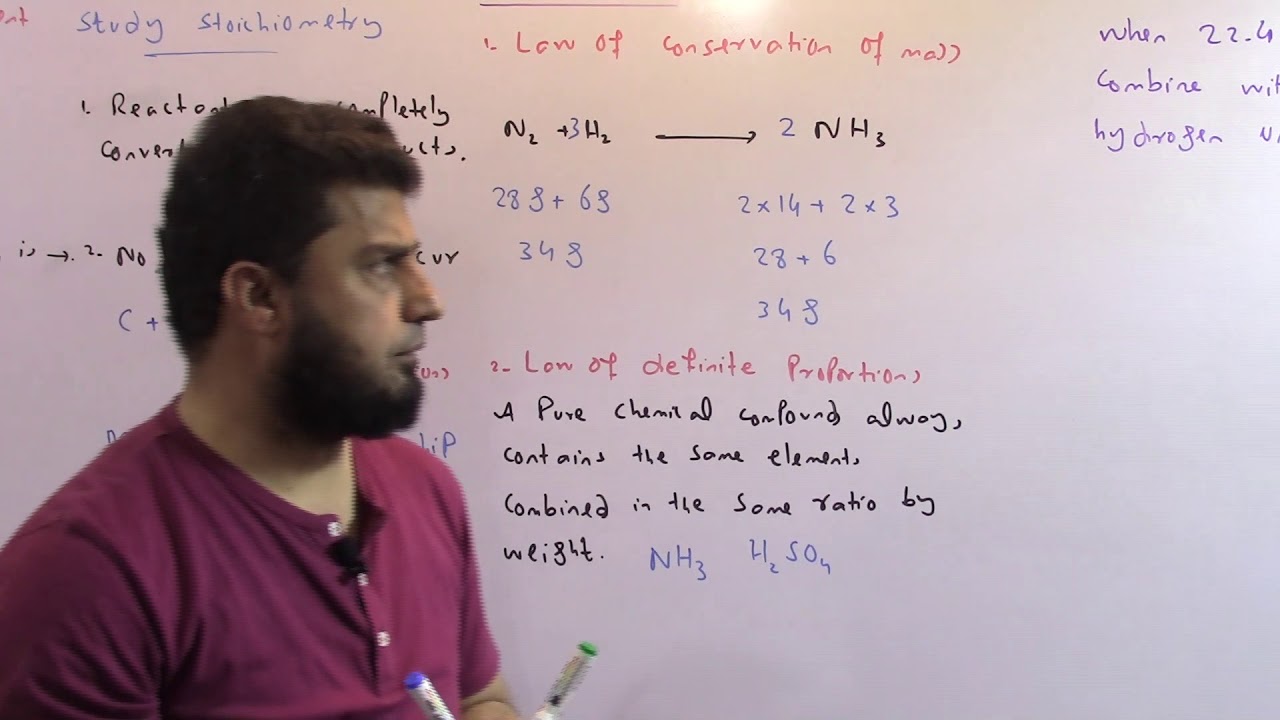 Study Stoichiometry
completely
is → 2- No
C +
1- Law of conservation of mass
N₂ + 3H₂ ⟶ 2 NH₃
28g + 6g 2×14 + 2×3
34g 28 + 6
34g
2- Law of definite Proportions
A Pure Chemical compound always
contains the same elements
combined in the same ratio by
weight. NH₃ H₂SO₄
when 22.4
Combine
hydrogen